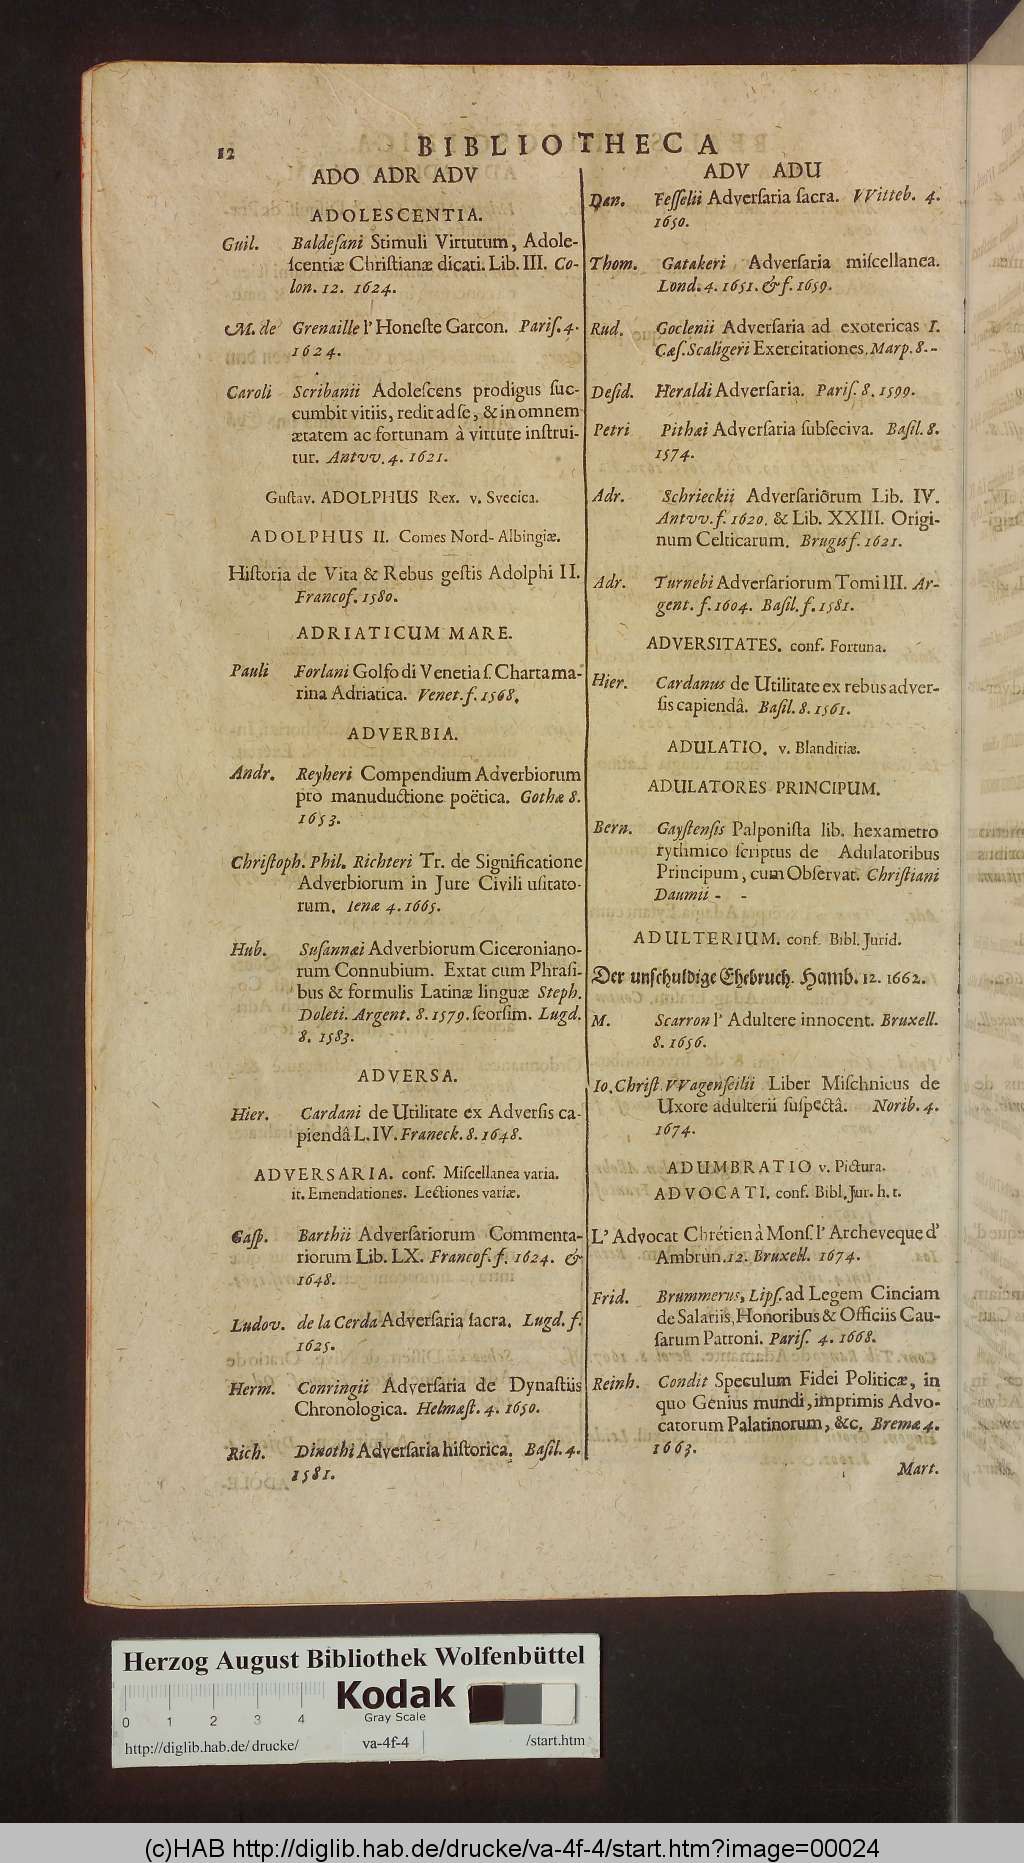 12
BIBLIOTHECA
ADO ADR ADV
ADOLESCENTIA.
Guil. Baldeſani Stimuli Virtutum, Adole-
ſcentiæ Chriſtianæ dicati. Lib. III. Co-
lon. 12. 1624.
M. de Grenaille l' Honeſte Garcon. Pariſ. 4.
1624.
Caroli Scribanii Adoleſcens prodigus ſuc-
cumbit vitiis, redit ad ſe, & in omnem
ætatem ac fortunam à virtute inſtrui-
tur. Antvv. 4. 1621.
Guſtav. ADOLPHUS Rex. v. Svecica.
ADOLPHUS II. Comes Nord-Albingiæ.
Hiſtoria de Vita & Rebus geſtis Adolphi II.
Francof. 1580.
ADRIATICUM MARE.
Pauli Forlani Golfo di Venetia ſ. Charta ma-
rina Adriatica. Venet. f. 1568.
ADVERBIA.
Andr. Reyheri Compendium Adverbiorum
pro manuductione poëtica. Gothæ 8.
1653.
Chriſtoph. Phil. Richteri Tr. de Significatione
Adverbiorum in Jure Civili uſitato-
rum. Ienæ 4. 1665.
Hub. Suſannæi Adverbiorum Ciceroniano-
rum Connubium. Extat cum Phraſi-
bus & formulis Latinæ linguæ Steph.
Doleti. Argent. 8. 1579. ſeorſim. Lugd.
8. 1583.
ADVERSA.
Hier. Cardani de Utilitate ex Adverſis ca-
piendâ L. IV. Franeck. 8. 1648.
ADVERSARIA. conf. Miſcellanea varia.
it. Emendationes. Lectiones variæ.
Gaſp. Barthii Adverſariorum Commenta-
riorum Lib. LX. Francof. f. 1624. &
1648.
Ludov. de la Cerda Adverſaria ſacra. Lugd. f.
1625.
Herm. Conringii Adverſaria de Dynaſtiis
Chronologica. Helmæſt. 4. 1650.
Rich. Dinothi Adverſaria hiſtorica. Baſil. 4.
1581.
ADV ADU
Dan. Feſſelii Adverſaria ſacra. VVitteb. 4.
1650.
Thom. Gatakeri Adverſaria miſcellanea.
Lond. 4. 1651. & f. 1659.
Rud. Goclenii Adverſaria ad exotericas I.
Cæſ. Scaligeri Exercitationes. Marp. 8. -
Deſid. Heraldi Adverſaria. Pariſ. 8. 1599.
Petri Pithæi Adverſaria ſubſeciva. Baſil. 8.
1574.
Adr. Schrieckii Adverſariôrum Lib. IV.
Antvv. f. 1620. & Lib. XXIII. Origi-
num Celticarum. Brugis f. 1621.
Adr. Turnebi Adverſariorum Tomi III. Ar-
gent. f. 1604. Baſil. f. 1581.
ADVERSITATES. conf. Fortuna.
Hier. Cardanus de Utilitate ex rebus adver-
ſis capiendâ. Baſil. 8. 1561.
ADULATIO. v. Blanditiæ.
ADULATORES PRINCIPUM.
Bern. Gayſtenſis Palponiſta lib. hexametro
rythmico ſcriptus de Adulatoribus
Principum, cum Obſervat. Chriſtiani
Daumii - -
ADULTERIUM. conf. Bibl. Jurid.
Der unſchuldige Ehebruch. Hamb. 12. 1662.
M. Scarron l' Adultere innocent. Bruxell.
8. 1656.
Io. Chriſt. VVagenſeilii Liber Miſchnicus de
Uxore adulterii ſuſpectâ. Norib. 4.
1674.
ADUMBRATIO v. Pictura.
ADVOCATI. conf. Bibl. Jur. h. t.
L' Advocat Chrétien à Monſ. l' Archeveque d'
Ambrun. 12. Bruxell. 1674.
Frid. Brummerus, Lipſ. ad Legem Cinciam
de Salariis, Honoribus & Officiis Cau-
ſarum Patroni. Pariſ. 4. 1668.
Reinh. Condit Speculum Fidei Politicæ, in
quo Genius mundi, imprimis Advo-
catorum Palatinorum, &c. Bremæ 4.
1663.
Mart.
Herzog August Bibliothek Wolfenbüttel
Kodak
Gray Scale
0 1 2 3 4
http://diglib.hab.de/drucke/ va-4f-4 /start.htm
(c)HAB http://diglib.hab.de/drucke/va-4f-4/start.htm?image=00024